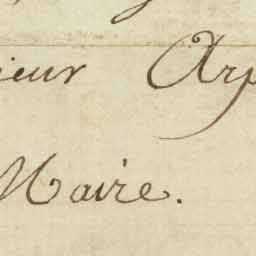 ieur Arp
Maire.